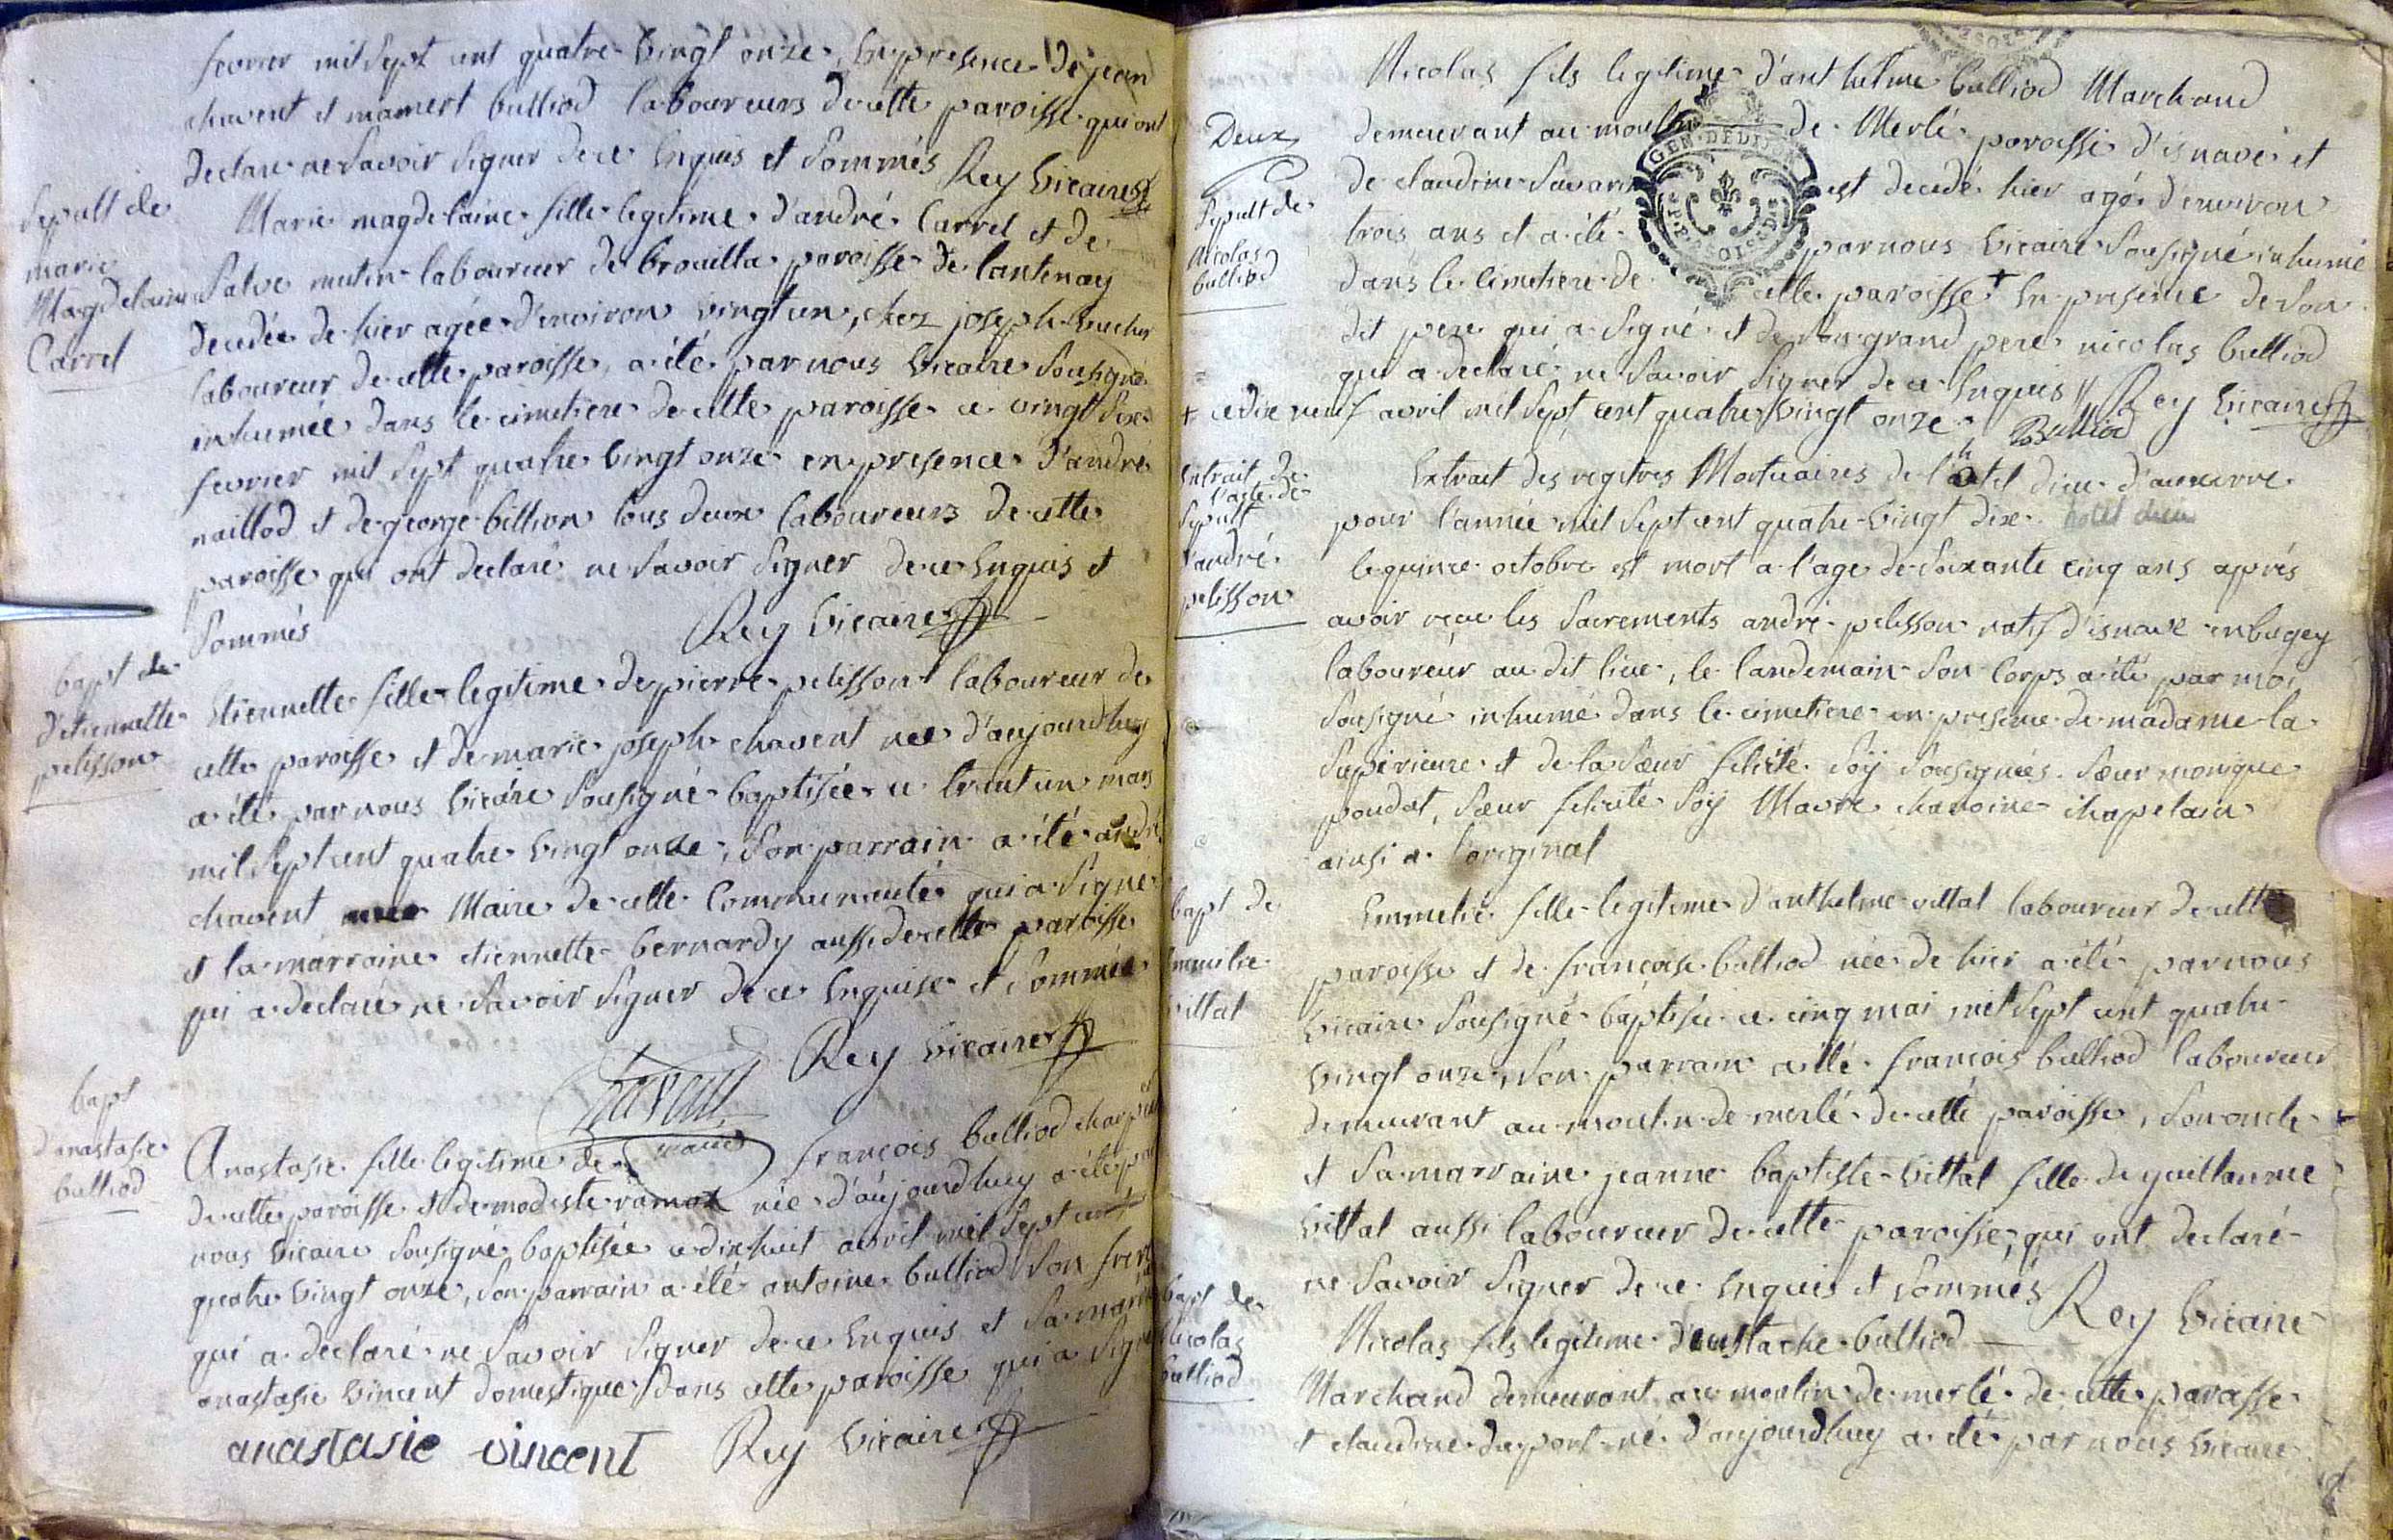 fevrier mil sept cent quatre-vingt onze, en presence de jean
chavent et mamert bulliod laboureurs de cette paroisse qui ont
declaré ne savoir signer de ce enquis et sommés Rey vicaire
Sepult de
marie
Magdelaine
Carrel
Marie magdelaine fille legitime d'andré Carrel et de
Salve mutin laboureur de brouilla paroisse de lantenay
decedée de hier agée d'environ vingt un, chez joseph
laboureur de cette paroisse, a été par nous vicaire sousigné
inhumée dans le cimetiere de cette paroisse ce vingt six
fevrier mil sept quatre vingt onze en presence d'andré
naillod et de george billion tous deux laboureurs de cette
paroisse qui ont declaré ne savoir signer de ce enquis et
sommés
Rey vicaire
bapt de
d'etiennette
pelisson
Etiennette fille legitime de pierre pelisson laboureur de
cette paroisse et de marie joseph chavent née d'aujourdhuy
a été par nous vicaire sousigné baptisée ce trent un mars
mil sept cent quatre vingt onze, son parrain a été andré
chavent Maire de cette Communauté qui a signé
et la marraine etiennette bernardy aussi de cette paroisse
qui a declaré ne savoir signer de ce enquise et sommée
Rey vicaire
chavent
maire
bapt
d'anastasie
bulliod
Anastasie fille legitime de françois bulliod
de cette paroisse et de modeste ramat née d'aujourdhuy a été par
nous vicaire sousigné baptisée ce dixhuit avril mil sept cent
quatre vingt onze, son parrain a été antoine bulliod son frere
qui a declaré ne savoir signer de ce enquis et sa marraine
anastasie vincent domestique dans cette paroisse qui a signé
anastasie vincent Rey vicaire
Nicolas fils legitime d'anthelme bulliod Marchand
Deux
demeurant au moulin de Merlé paroisse d'isnave et
GEN. DE DIJON
de claudine Savarin est decedé hier agé d'environ
Sepult de
Nicolas
bulliod
trois ans et a été par nous vicaire sousigné inhumé
dans le cimetiere de cette paroisse + en presence de son
dit pere qui a signé et de son grand pere nicolas bulliod
qui a declaré ne savoir signer de ce enquis // Rey vicaire
+ ce dix neuf avril mil sept cent quatre vingt onze Bulliod
Extrait de
l'acte de
Sepult
d'andré
pelisson
Extrait des regitres Mortuaires de l'hotel dieu d'auxerre
pour l'année mil sept cent quatre-vingt dix. hotel dieu
le quinze octobre est mort a l'age de soixante cinq ans après
avoir reçu les sacrements andré pelisson natif d'isnave en bugey
laboureur au dit lieu, le landemain son corps a été par moi
sousigné inhumé dans le cimetiere en presence de madame la
Supérieure et de la sœur felicité Soÿ sousignées. Sœur monique
poudat, sœur felicité Soÿ Mavre chanoine chapelain
ainsi a l'original
bapt de
emmelie
vittat
Emmelié fille legitime d'anthelme vittat laboureur de cette
paroisse et de françoise bulliod née de hier a été par nous
vicaire sousigné baptisée ce cinq mai mil sept cent quatre
vingt onze, son parrain a été françois bulliod laboureur
demeurant au moulin de merlé de cette paroisse, son oncle
et sa marraine jeanne baptiste vittat fille de guillaume
vittat aussi laboureur de cette paroisse, qui ont declaré
ne savoir signer de ce enquis et sommés Rey vicaire
bapt de
Nicolas
bulliod
Nicolas fils legitime d'eustache bulliod
Marchand demeurant au moulin de merlé de cette paroisse
et claudine dupont né d'aujourdhuy a été par nous vicaire